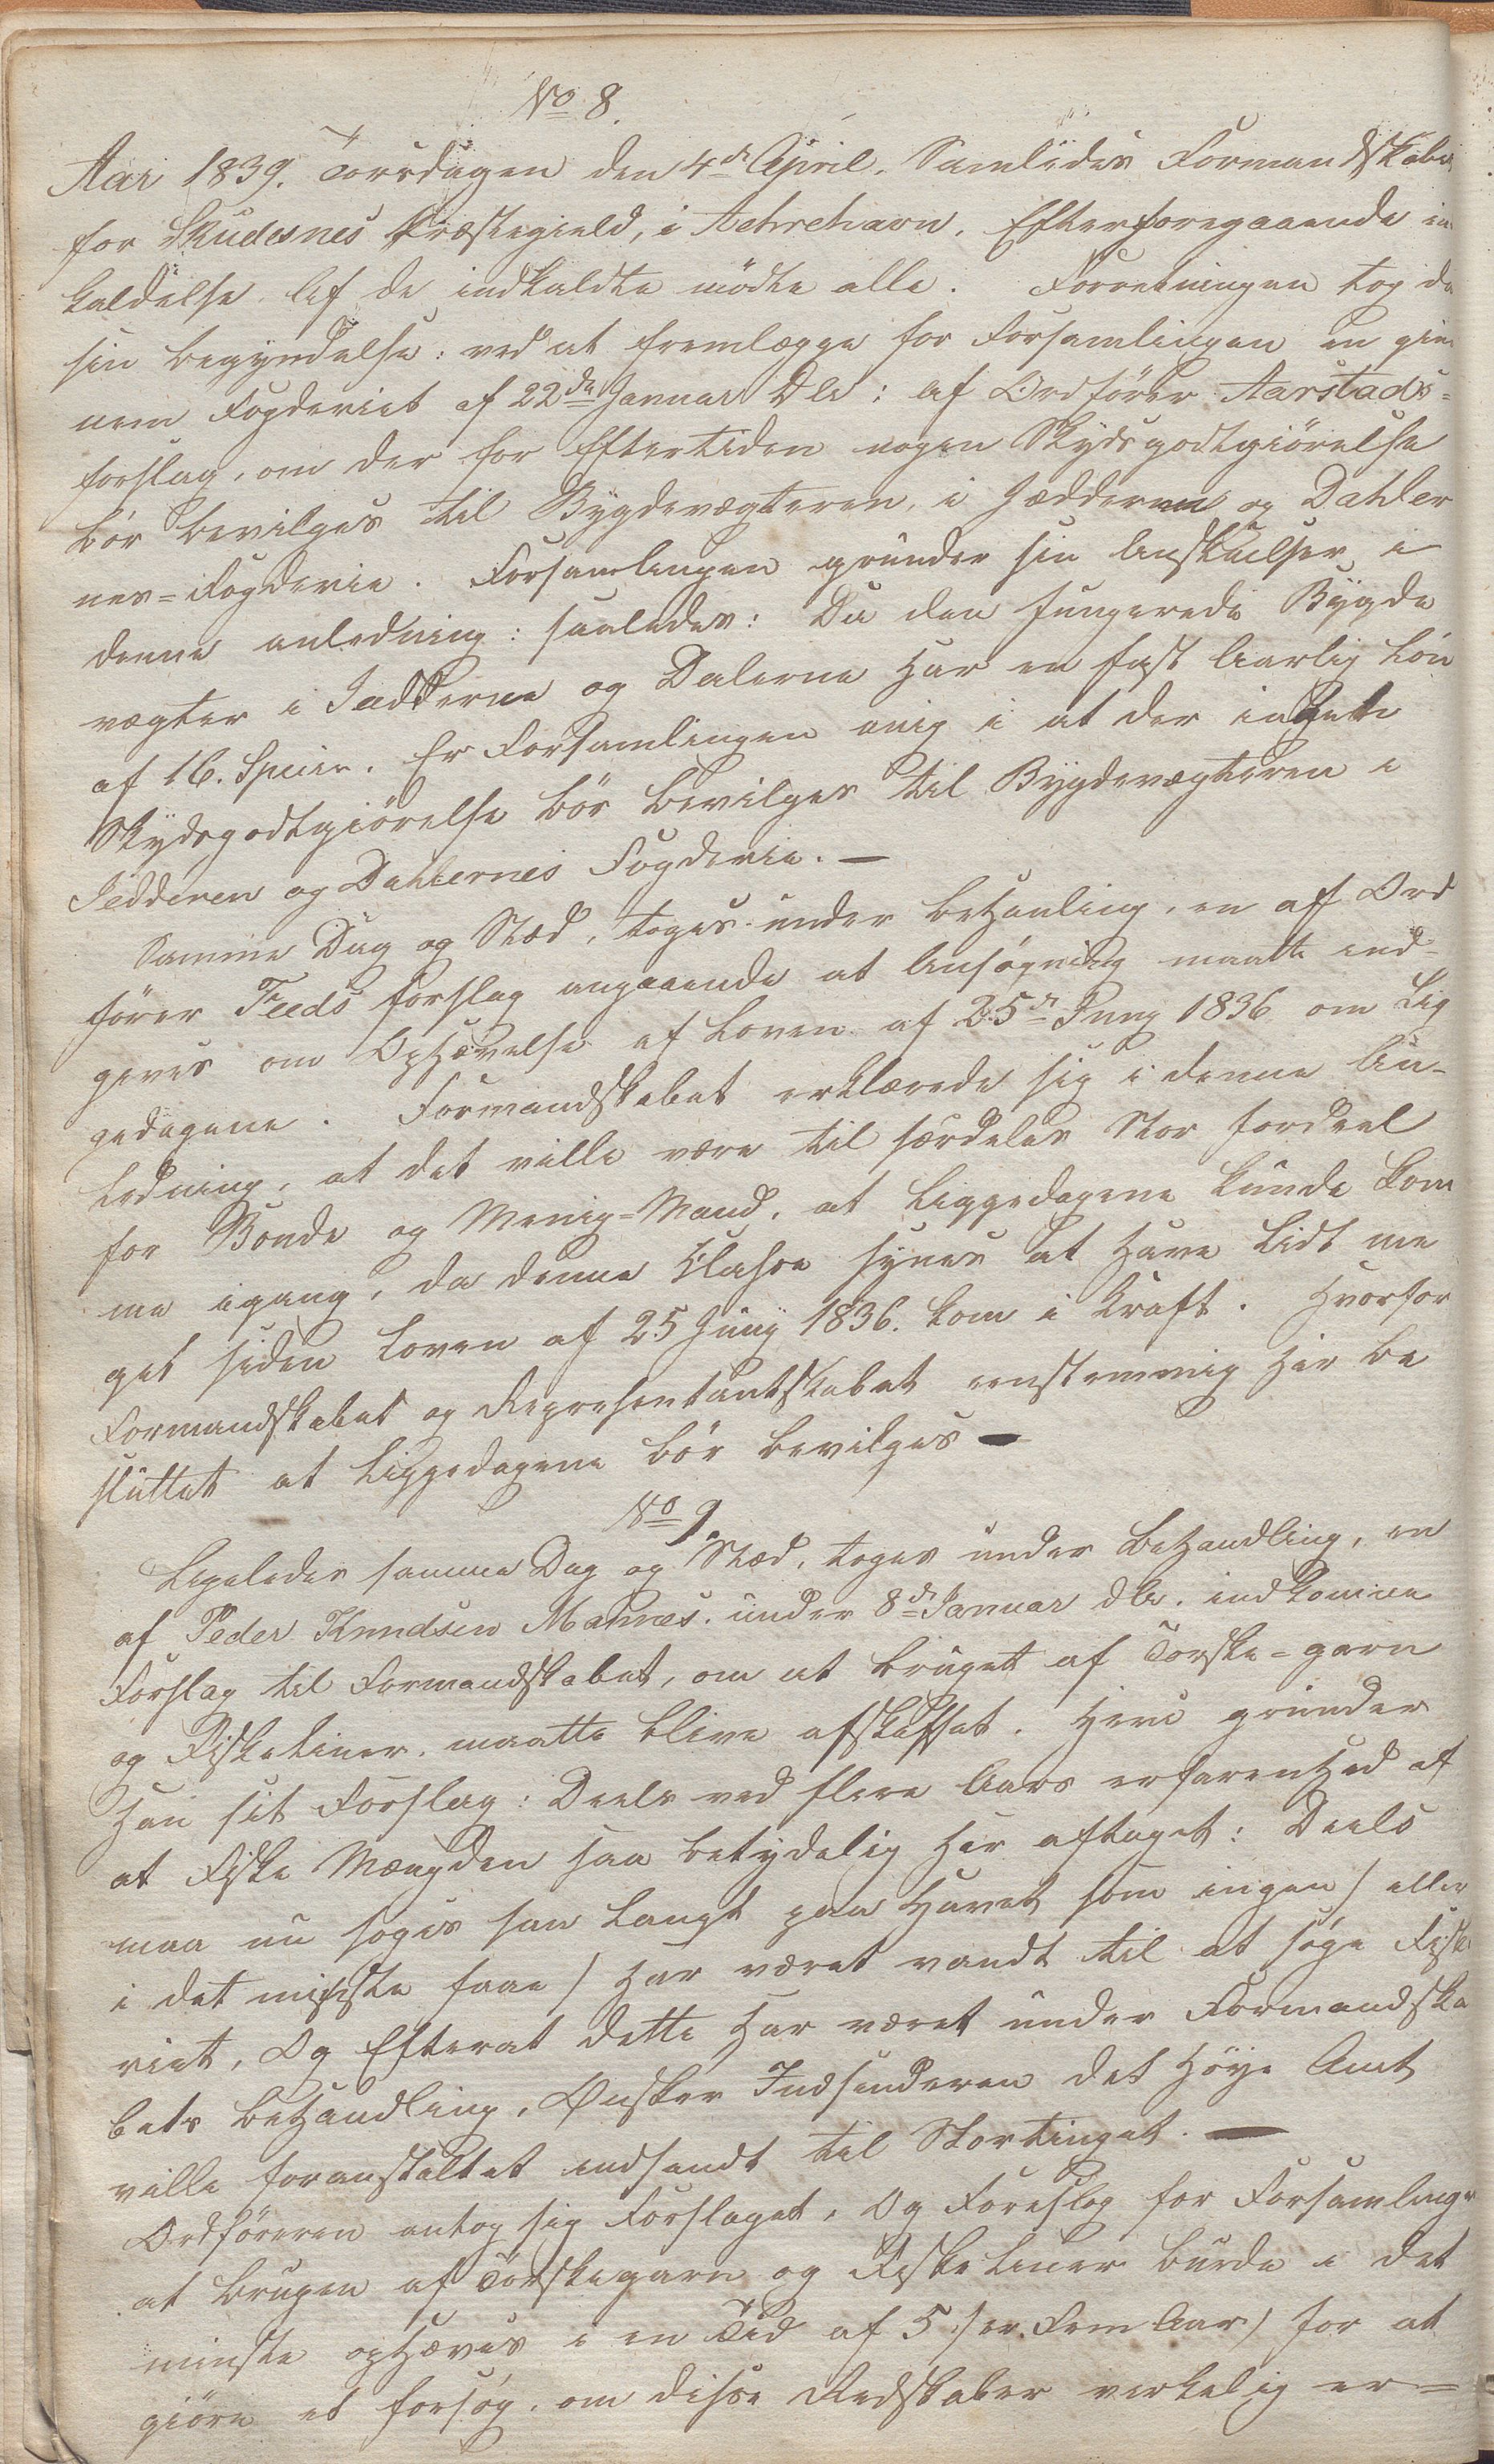 No 8.
Aar 1839. Torsdagen den 4de April. Samledes Formandskabe
for Skudesnes Præstegield, i Aehrehavn. Efterforegaaende in
kaldelse. Af de indkaldte mödte alle. Forretningen tog da
sin begyndelse: ved at fremlægge for Forsamlingen en gien
nem Fogderiet af 22de Januar D A: af Ordförer Aarstads-
forslag, om der for Eftertiden nogen Skydsgodtgiörelse
bör bevilges til Bygdevægteren, i Jædderen og Dahler
nes=Fogderie. Forsamlingen grunder sin Anskuelser i
denne anledning: saaledes: Da den fungerede Bygde
vægter i Jædderne og Dalerne har en fast Aarlig Lön
af 16. Specier. Er Forsamlingen enig i at der intet
Skydsgodtgiörelse bör bevilges til Bygdevægteren i
Jedderen og Dahlernes Fogderie. —
Samme Dag og Stæd, toges under behanling, en af Ord
förer Feeds forslag angaaende at Ansögning maatte ind-
gives om Ophævelse af Loven af 25de Juny 1836 om Lig
gedagene. Formandskabet erklærede sig i denne An-
ledning, at det ville være til særdeles Stor fordeel
for Bonde og Menig=Mand, at Liggedagene kunde kom
me igang, da denne Klasse synes at have Lidt me
get siden Loven af 25 Juny 1836. kom i Kraft. Hvorfor
Formandskabet og Repræsentantskabet eenstemmig her be
sluttet at Liggedagene bör bevilges —
No 9.
Ligeledes samme Dag og Stæd, toges under Behandling, en
af Peder Knudsen Mannes. under 8de Januar d A. indkomne
Forslag til Formandskabet, om at bruget af Torske=garn
og Fiskeliner. maatte blive afskaffet. Heri grunder
han sit Forslag: Deels ved flere Aars erfarenhed af
at Fiske Mængden saa betydelig her aftaget: Deels
maa nu söges saa langt paa Havet som ingen / eller
i det mindste faae / har været vandt til at söge Fiske
riet, Og Efterat dette har været under Formandska
bets behandling, Ønsker Indsenderen det Höye Amt
ville foranstaltet indsendt til Stortinget. —
Ordföreren antog sig Forslaget, Og Foreslog for Forsamlingen
at brugen af Torskegarn og Fiske Liner burde i det
minste ophæves i en Tid af 5 / er. Fem Aar / for at
giöre et forsög. om disse Redskaber verkelig er=